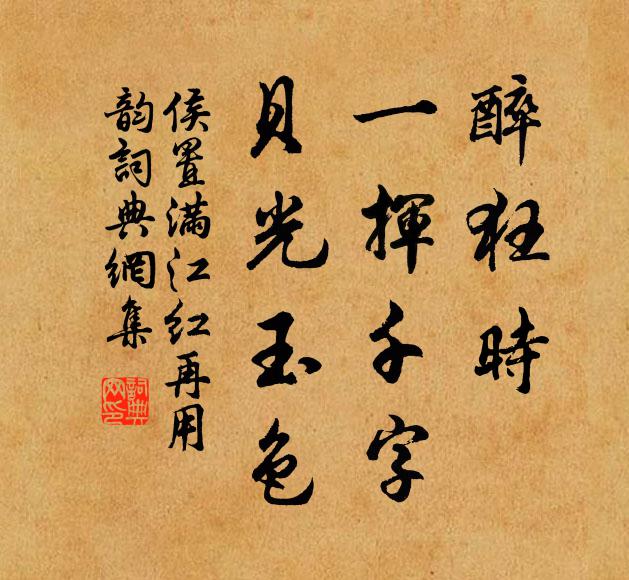 醉狂時
一揮千字
貝光玉色
侯置滿江紅再用
韵詞典網集
詞典
網印